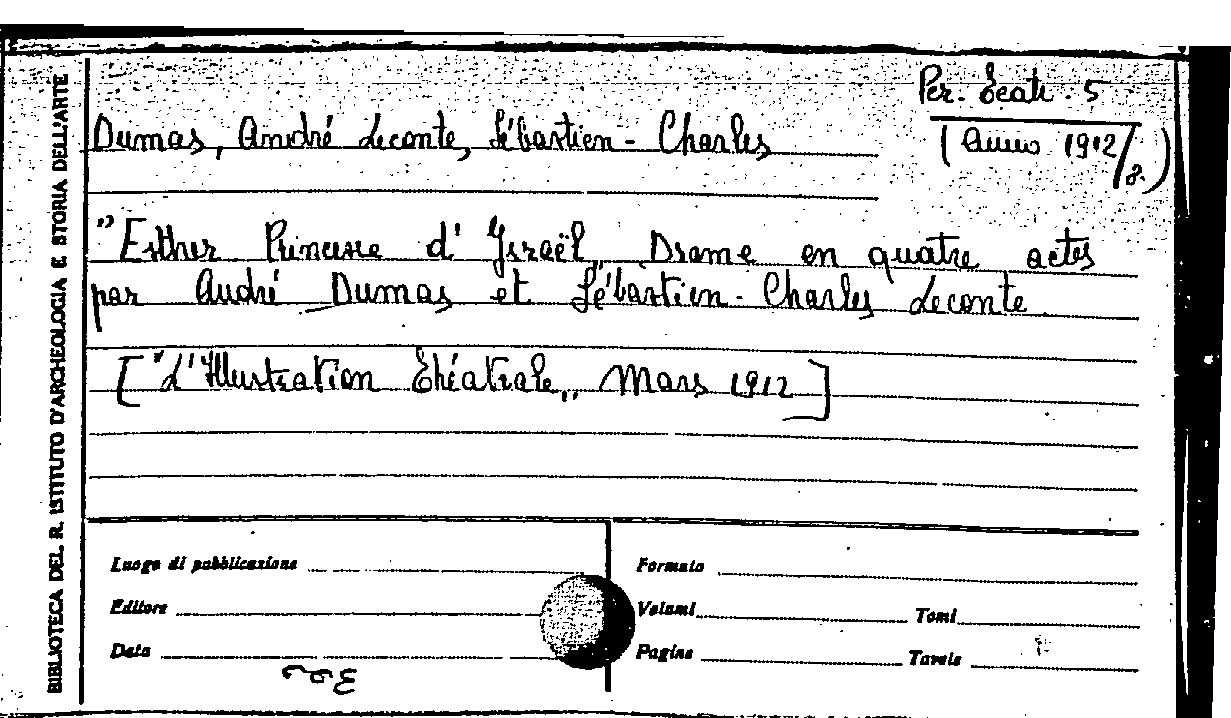 BIBLIOTECA DEL R. ISTITUTO D'ARCHEOLOGIA E STORIA DELL'ARTE
Per. Teatr. 5
(Anno 1912/8.)
Dumas, André Leconte, Sébastien - Charles
"Esther Princesse d'Israël„ Drame en quatre actes
par André Dumas et Sébastien - Charles Leconte
["L'Illustration Théatrale„ Mars 1912]
Luogo di pubblicazione
Formato
Editore
Volumi
Tomi
Data
Pagine
Tavole